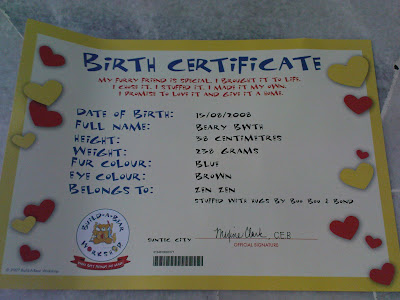 BIRTH CERTIFICATE
MY FURRY FRIEND IS SPECIAL. I BROUGHT IT TO LIFE.
I CHOSE IT. I STUFFED IT. I MADE IT MY OWN.
I PROMISE TO LOVE IT AND GIVE IT A HOME.
DATE OF BIRTH: 15/08/2008
FULL NAME: BEARY BWTH
HEIGHT: 38 CENTIMETRES
WEIGHT: 258 GRAMS
FUR COLOUR: BLUE
EYE COLOUR: BROWN
BELONGS TO: ZEN ZEN
STUFFED WITH HUGS BY BOO BOO & BOND
BUILD-A-BEAR
WORKSHOP
SUNTEC CITY
Maxine Clark CEB
OFFICIAL SIGNATURE